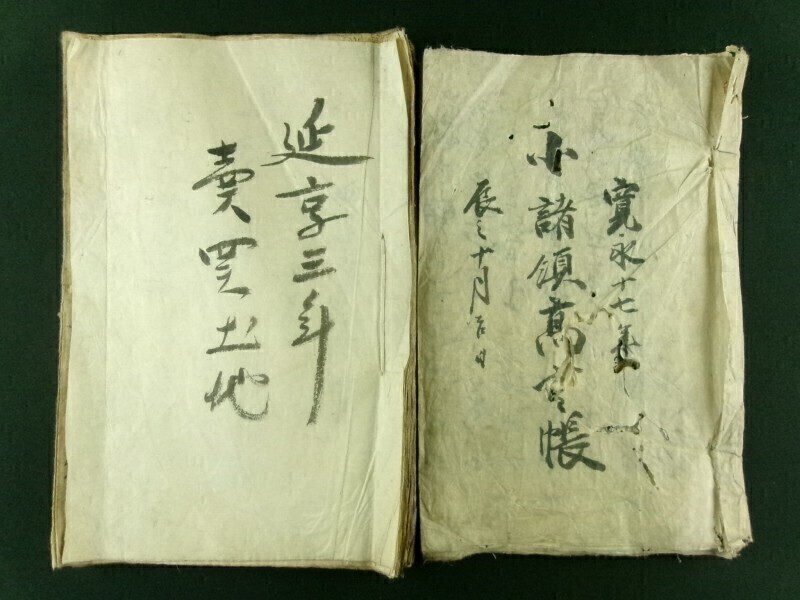 延享三年
賣買土地
寛永十七年
小諸領高書帳
辰之十月吉日